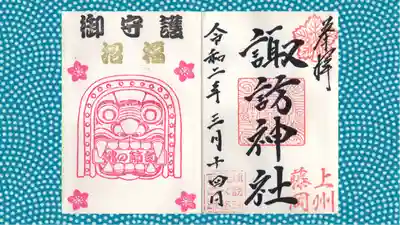 奉拝
諏訪神社
上州
藤岡
令和二年三月十四日
御守護
招福